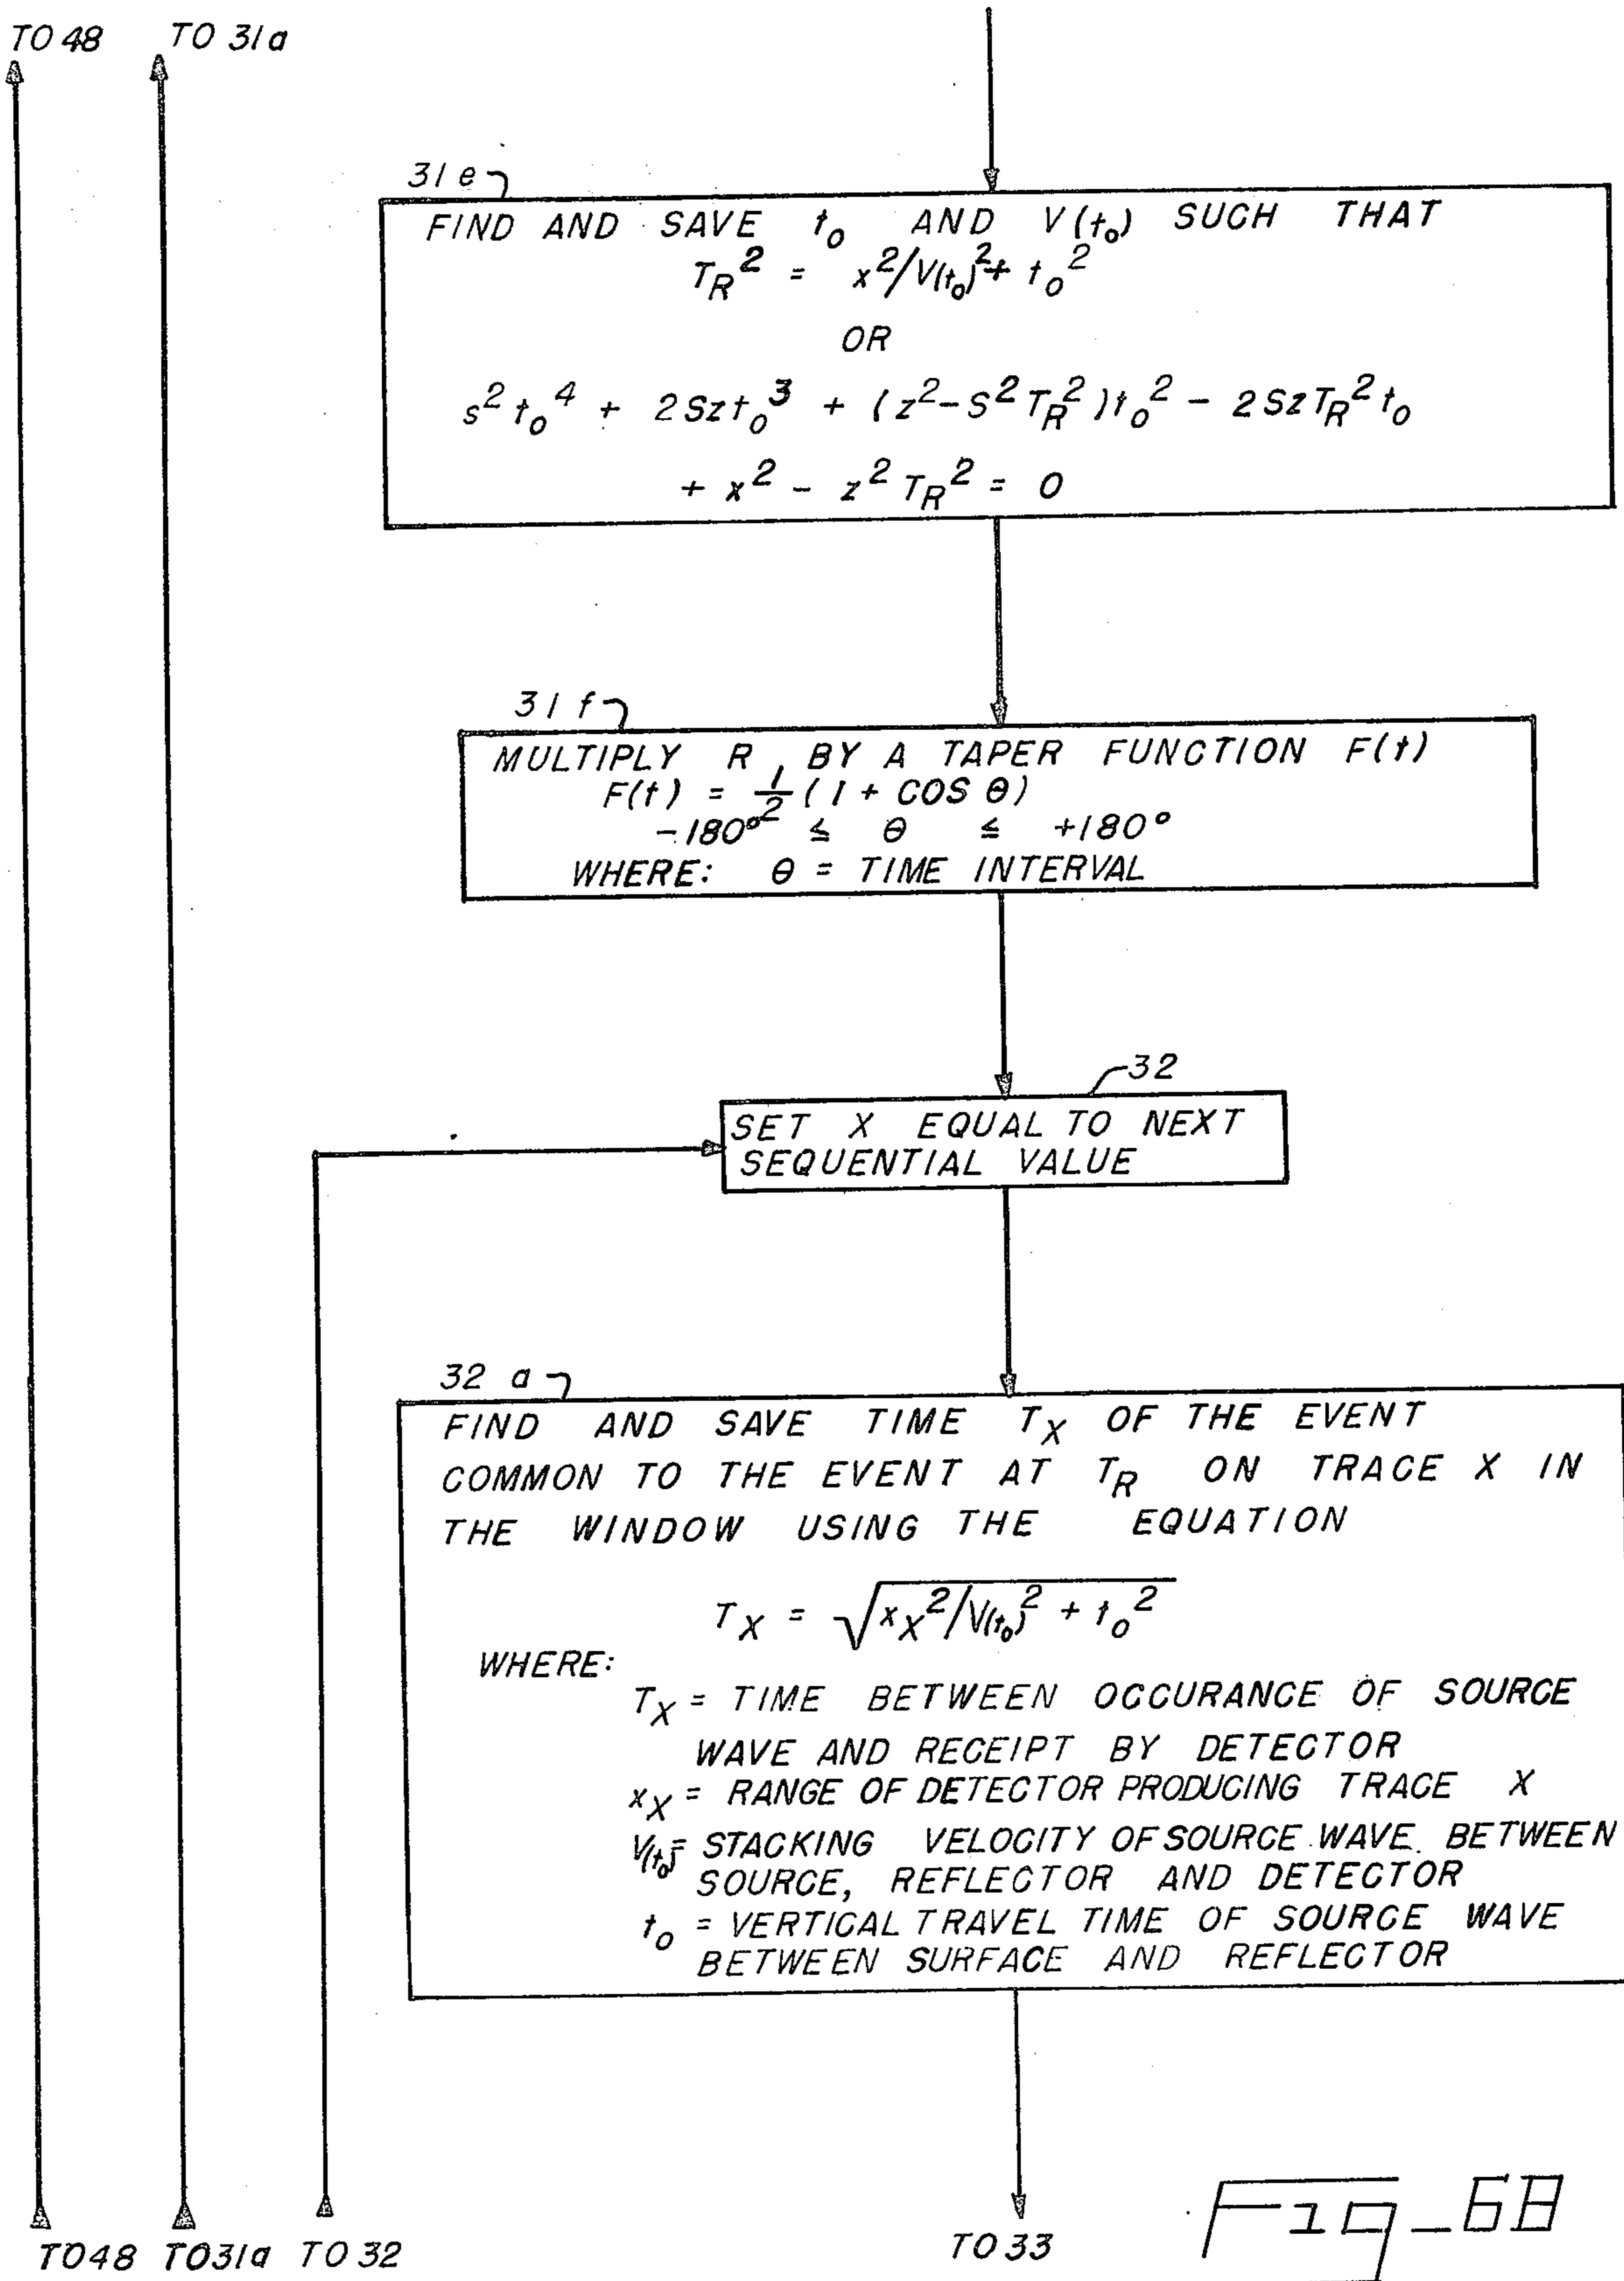 TO 48 TO 31a
31 e
FIND AND SAVE t₀ AND V(t₀) SUCH THAT
T_R² = x²/V(t₀)² + t₀²
OR
s² t₀⁴ + 2Szt₀³ + (z²-S² T_R²)t₀² - 2SzT_R² t₀
+ x² - z² T_R² = 0
31 f
MULTIPLY R, BY A TAPER FUNCTION F(t)
F(t) = 1/2 (1 + COS θ)
-180° ≤ θ ≤ +180°
WHERE: θ = TIME INTERVAL
32
SET X EQUAL TO NEXT
SEQUENTIAL VALUE
32 a
FIND AND SAVE TIME T_X OF THE EVENT
COMMON TO THE EVENT AT T_R ON TRACE X IN
THE WINDOW USING THE EQUATION
T_X = √(x_X²/V(t₀)² + t₀²)
WHERE:
T_X = TIME BETWEEN OCCURANCE OF SOURCE
WAVE AND RECEIPT BY DETECTOR
x_X = RANGE OF DETECTOR PRODUCING TRACE X
V(t₀) = STACKING VELOCITY OF SOURCE WAVE BETWEEN
SOURCE, REFLECTOR AND DETECTOR
t₀ = VERTICAL TRAVEL TIME OF SOURCE WAVE
BETWEEN SURFACE AND REFLECTOR
TO48 TO31a TO 32
TO 33
Fig_6B